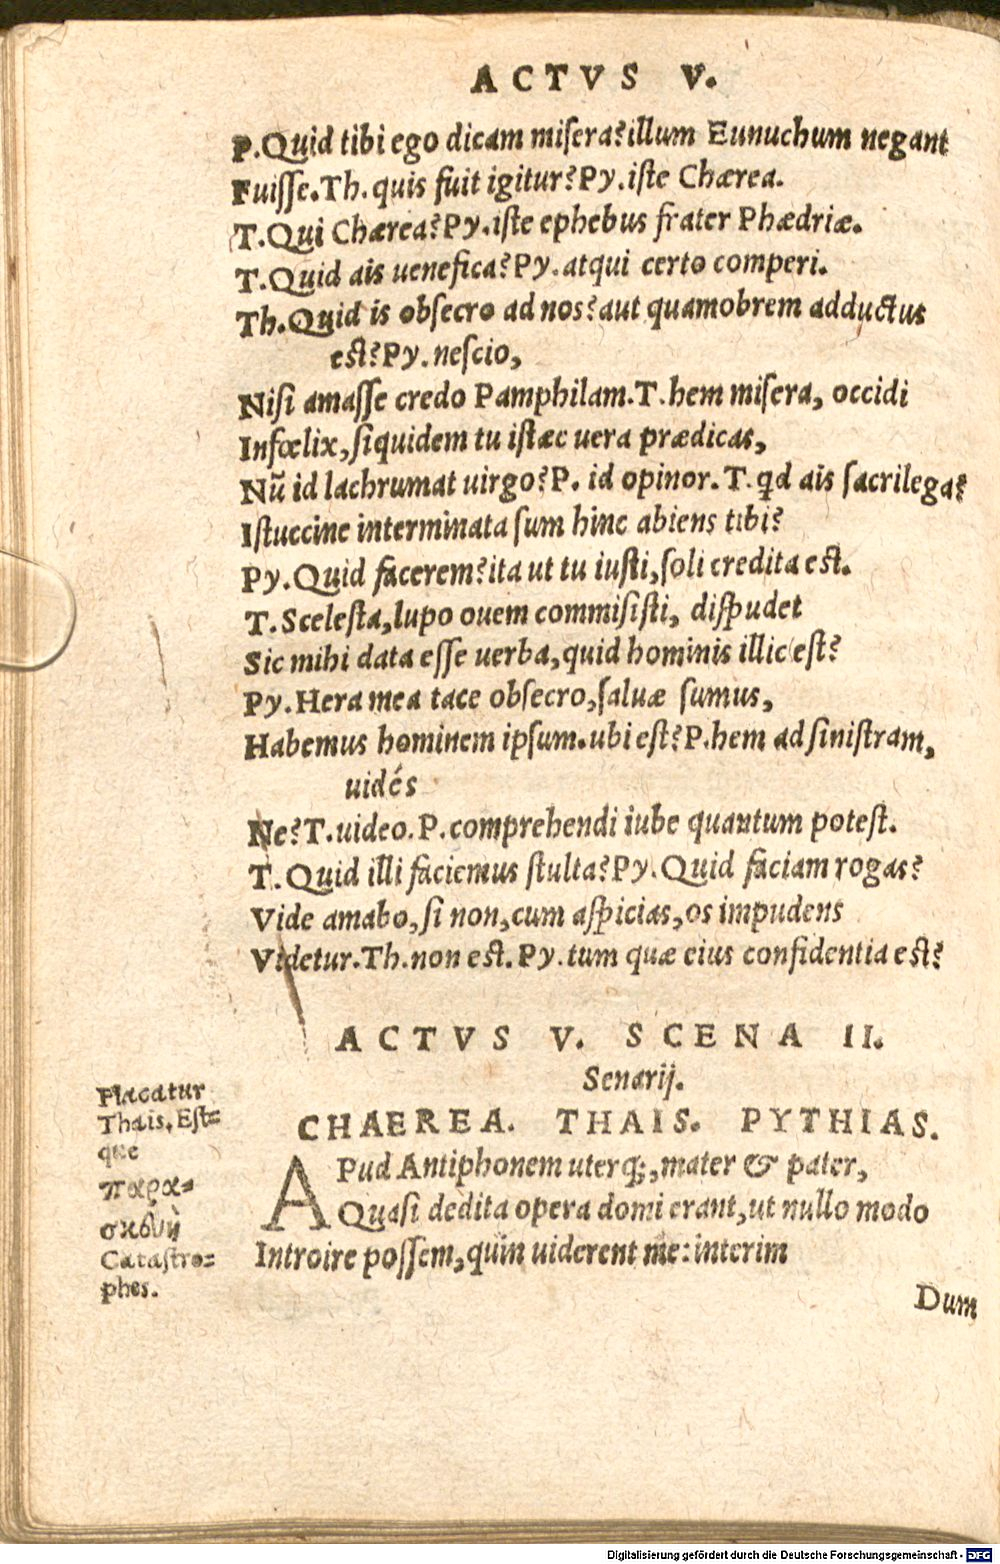 ACTVS V.
P.Quid tibi ego dicam misera?illum Eunuchum negant
Fuisse.Th.quis fuit igitur?Py.iste Chærea.
T.Qui Chærea?Py.iste ephebus frater Phædriæ.
T.Quid ais uenefica?Py.atqui certo comperi.
Th.Quid is obsecro ad nos?aut quamobrem adductus
est?Py.nescio,
Nisi amasse credo Pamphilam.T.hem misera, occidi
Infœlix,siquidem tu istæc uera prædicas,
Nū id lachrumat uirgo?P. id opinor.T.qd ais sacrilega?
Istuccine interminata sum hinc abiens tibi?
Py.Quid facerem?ita ut tu iusti,soli credita est.
T.Scelesta,lupo ouem commisisti, dispudet
Sic mihi data esse uerba,quid hominis illic est?
Py.Hera mea tace obsecro,saluæ sumus,
Habemus hominem ipsum.ubi est?P.hem ad sinistram,
uidés
Ne?T.uideo.P.comprehendi iube quantum potest.
T.Quid illi faciemus stulta?Py.Quid faciam rogas?
Vide amabo,si non,cum aspicias,os impudens
Videtur.Th.non est.Py.tum quæ eius confidentia est?
ACTVS V. SCENA II.
Senarij.
CHAEREA. THAIS. PYTHIAS.
Placatur
Thais.Est=
que
παρα=
σκευὴ
Catastro=
phes.
APud Antiphonem uterq;,mater & pater,
Quasi dedita opera domi erant,ut nullo modo
Introire possem,quin uiderent me:interim
Dum
Digitalisierung gefördert durch die Deutsche Forschungsgemeinschaft - DFG